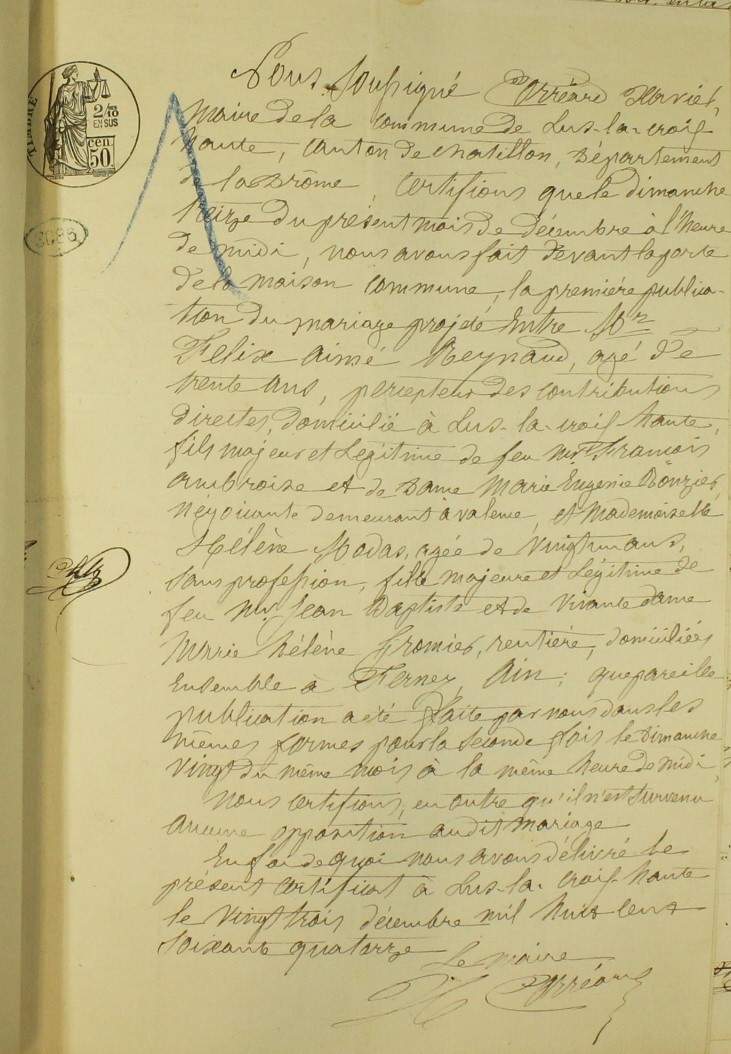 Nous soussigné Corréard Xavier,
maire de la commune de Lus-la-croix
haute, canton de chatillon, Département
de la Drôme, certifions que le dimanche
treize du présent mois de décembre à l'heure
de midi, nous avons fait devant la porte
de la maison commune, la première publica-
tion du mariage projeté Entre Mr
Felix Aimé Reynaud, agé de
trente ans, percepteur des contributions
directes, domicilié à Lus-la-croix haute,
fils majeur et Légitime de feu Mr François
Ambroise et de Dame Marie Eugenie
négociante demeurant à valence, et Mademoiselle
Hélène Modas, agée de vingt un ans,
sans profession, fille majeure et Légitime de
feu Mr Jean Baptiste et de vivante dame
Marie Hélène Fromier, rentière, domiciliées
Ensemble à Ferney, Ain; que pareille
publication a été faite par nous dans les
mêmes formes pour la seconde fois le Dimanche
vingt du même mois à la même heure de midi,
Nous certifions, en outre qu'il n'est survenu
aucune opposition audit mariage
En foi de quoi nous avons délivré le
présent certificat à Lus-la-croix haute
le vingt trois décembre mil huit cent
soixante quatorze
Le maire
X Corréard
TIMBRE
2/10
EN SUS
50 cen.